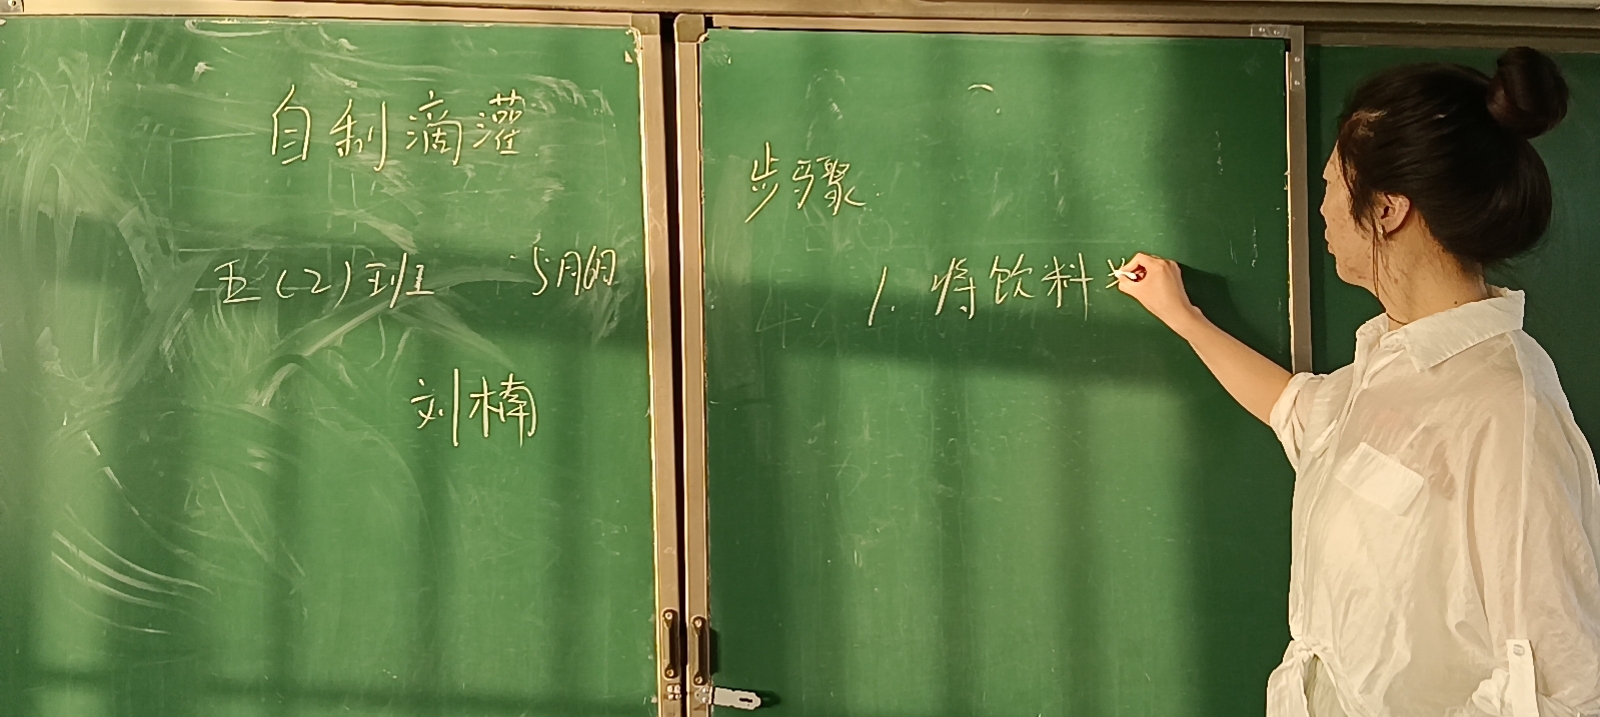 自制滴灌
五(2)班 5月6日
刘楠
步骤
1. 将饮料